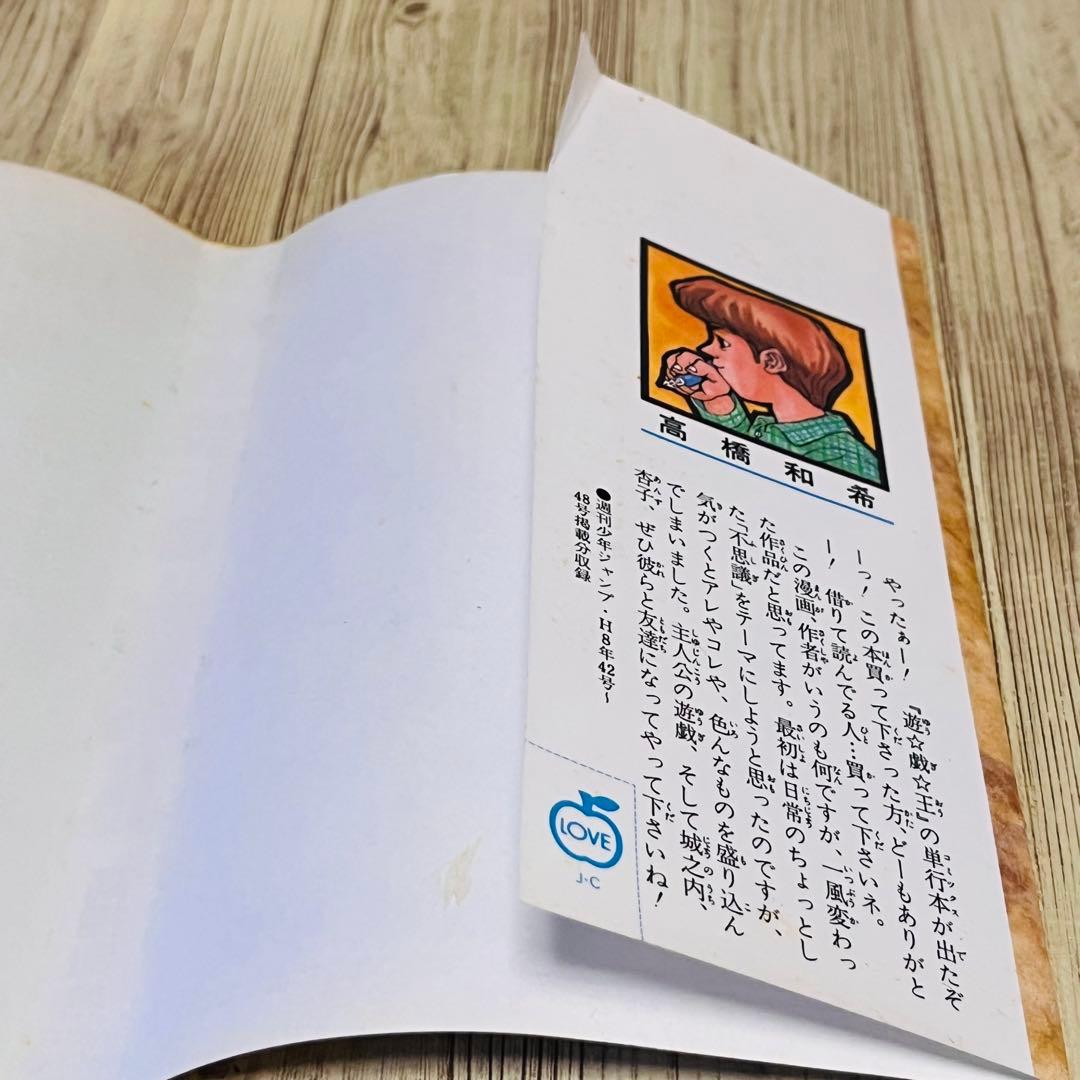 高橋和希
やったぁー！『遊☆戯☆王』の単行本が出たぞ
ーっ！この本買って下さった方、どーもありがと
ー！借りて読んでる人…買って下さいネ。
この漫画、作者がいうのも何ですが、一風変わっ
た作品だと思ってます。最初は日常のちょっとし
た「不思議」をテーマにしようと思ったのですが、
気がつくとアレやコレや、色んなものを盛り込ん
でしまいました。主人公の遊戯、そして城之内、
杏子、ぜひ彼らと友達になってやって下さいね！
●週刊少年ジャンプ・H8年42号～
48号掲載分収録
LOVE
J・C